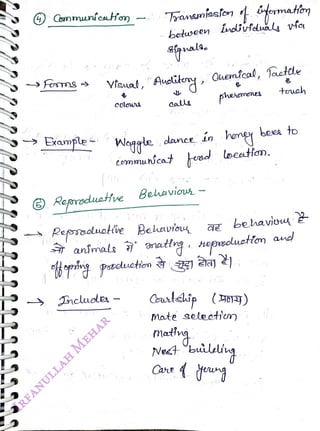 ④ Communication - Transmission of information
between individuals via
signals.
→ Forms → Visual, Auditory, Chemical, Tactile
↓ colours ↓ calls ↓ pheromones ↓ touch
→ Example - Waggle dance in honey bees to
communicat food location.
⑤ Reproductive Behaviour -
→ Reproductive Behaviour वह behaviour है
जो animals में mating, reproduction and
offspring production से जुड़ा होता है।
→ Includes - Courtship (प्रणय)
Mate selection
Mating
Nest building
Care of young
IRFANULLAH MEHAR